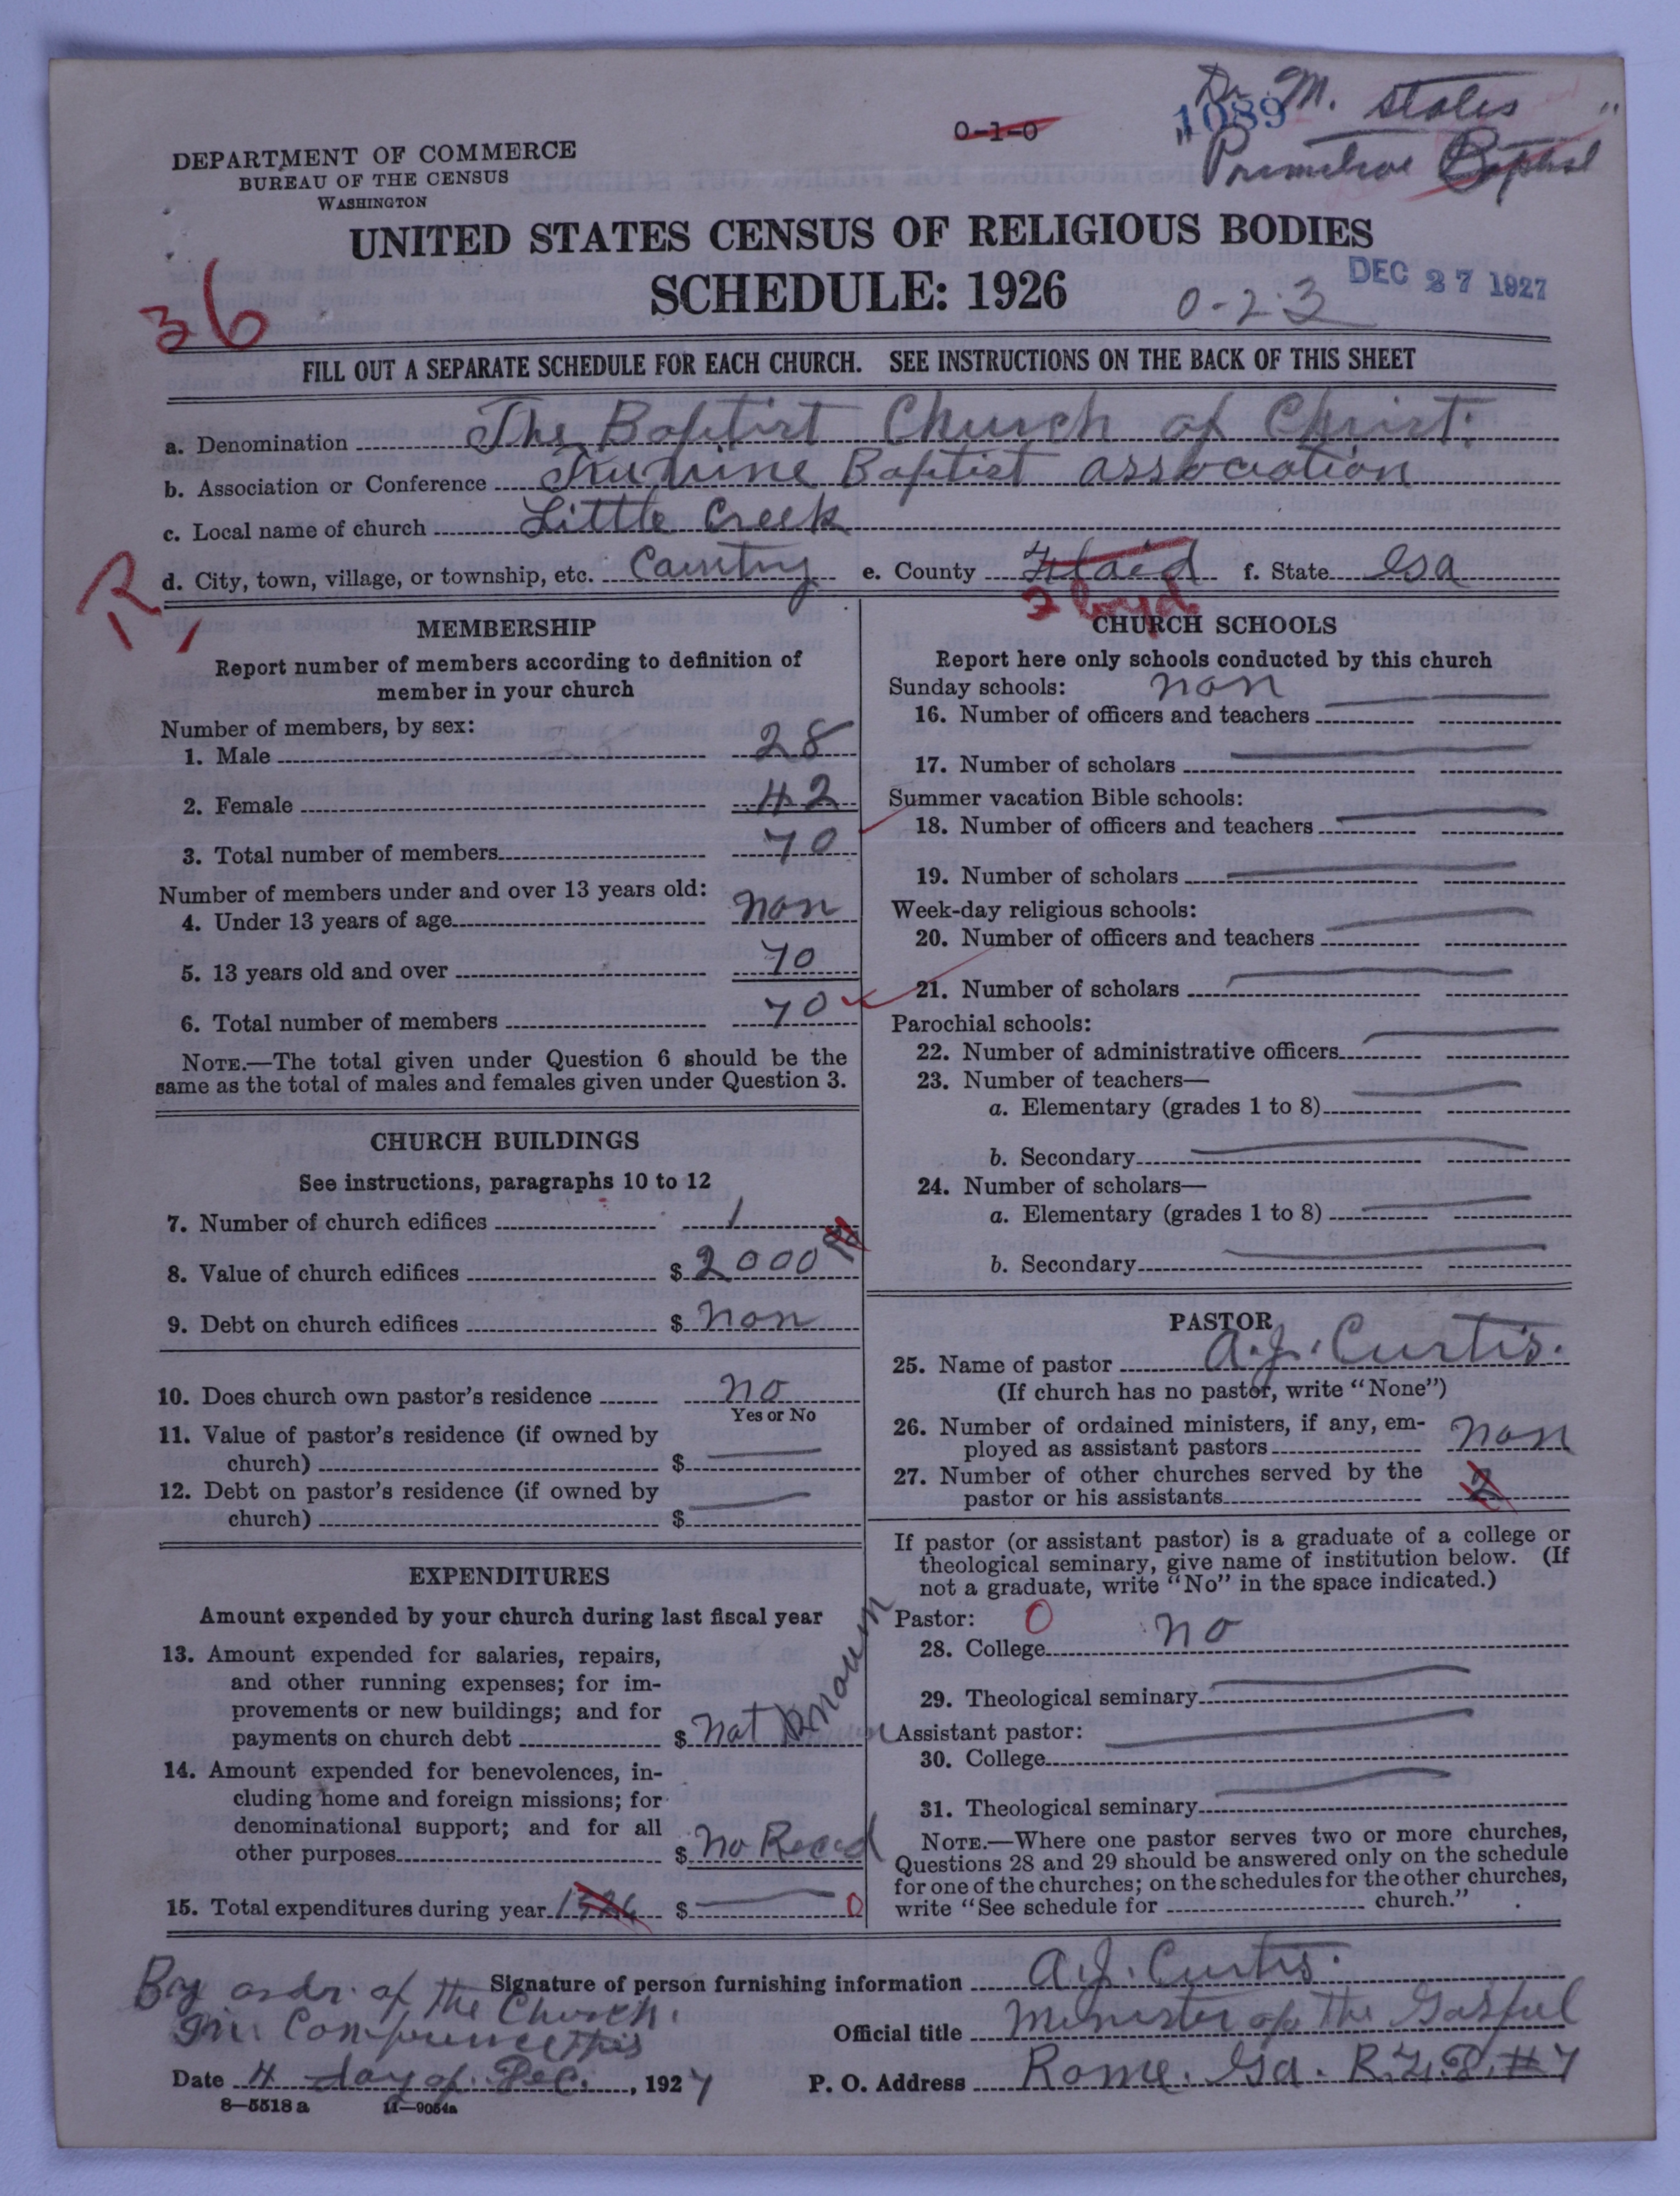 Dr. M. states "
1089
0-1-0
" Primitive Baptist
DEPARTMENT OF COMMERCE
BUREAU OF THE CENSUS
WASHINGTON
UNITED STATES CENSUS OF RELIGIOUS BODIES
SCHEDULE: 1926
DEC 27 1927
0-2-3
36
FILL OUT A SEPARATE SCHEDULE FOR EACH CHURCH. SEE INSTRUCTIONS ON THE BACK OF THIS SHEET
a. Denomination The Baptist Church of Christ.
b. Association or Conference Baptist association
c. Local name of church Little Creek
d. City, town, village, or township, etc. Cauntry e. County Floid f. State Ga
Floyd
R,
MEMBERSHIP
Report number of members according to definition of
member in your church
Number of members, by sex:
1. Male 28
2. Female 42
3. Total number of members 70
Number of members under and over 13 years old:
4. Under 13 years of age non
5. 13 years old and over 70
6. Total number of members 70
NOTE.—The total given under Question 6 should be the
same as the total of males and females given under Question 3.
CHURCH BUILDINGS
See instructions, paragraphs 10 to 12
7. Number of church edifices 1
8. Value of church edifices $ 2000
9. Debt on church edifices $ non
10. Does church own pastor's residence no
Yes or No
11. Value of pastor's residence (if owned by
church) $
12. Debt on pastor's residence (if owned by
church) $
EXPENDITURES
Amount expended by your church during last fiscal year
13. Amount expended for salaries, repairs,
and other running expenses; for im-
provements or new buildings; and for
payments on church debt $ not knowen
14. Amount expended for benevolences, in-
cluding home and foreign missions; for
denominational support; and for all
other purposes $ no Recod
15. Total expenditures during year 1926 $ 0
CHURCH SCHOOLS
Report here only schools conducted by this church
Sunday schools: non
16. Number of officers and teachers
17. Number of scholars
Summer vacation Bible schools:
18. Number of officers and teachers
19. Number of scholars
Week-day religious schools:
20. Number of officers and teachers
21. Number of scholars
Parochial schools:
22. Number of administrative officers
23. Number of teachers—
a. Elementary (grades 1 to 8)
b. Secondary
24. Number of scholars—
a. Elementary (grades 1 to 8)
b. Secondary
PASTOR
25. Name of pastor A.J. Curtis.
(If church has no pastor, write "None")
26. Number of ordained ministers, if any, em-
ployed as assistant pastors non
27. Number of other churches served by the
pastor or his assistants 2
If pastor (or assistant pastor) is a graduate of a college or
theological seminary, give name of institution below. (If
not a graduate, write "No" in the space indicated.)
Pastor: 0
28. College no
29. Theological seminary
Assistant pastor:
30. College
31. Theological seminary
NOTE.—Where one pastor serves two or more churches,
Questions 28 and 29 should be answered only on the schedule
for one of the churches; on the schedules for the other churches,
write "See schedule for church."
Signature of person furnishing information A.J. Curtis.
Boy ordr. of the Church.
in Conference this
Official title Minister of the Gospul
Date 4 day of Dec. , 1927 P. O. Address Rome. Ga. R.F.D. #7
8—5518 a 11—9054a